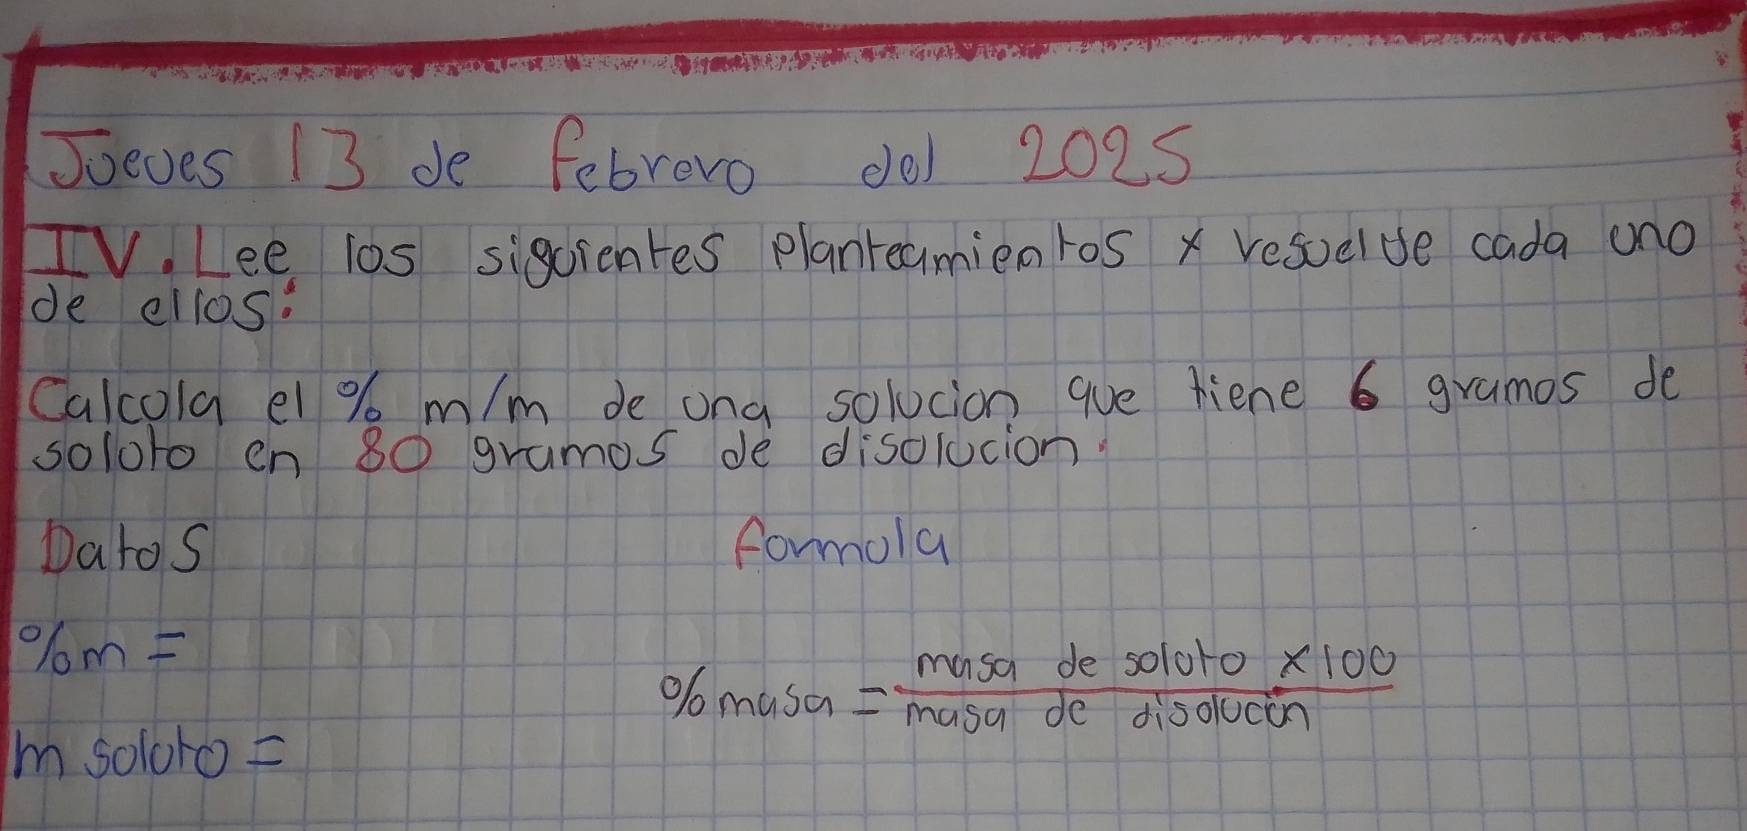 Jueves 13 de febrero del 2025
IV. Lee los siguientes planteamientos y resuelve cada uno
de ellos:
Calcula el % m/m de una solucion que tiene 6 gramos de
soluto en 80 gramos de disolucion.
Datos formula
%m =
masa de soluto x100
%masa =
masa de disolucin
m soluto =